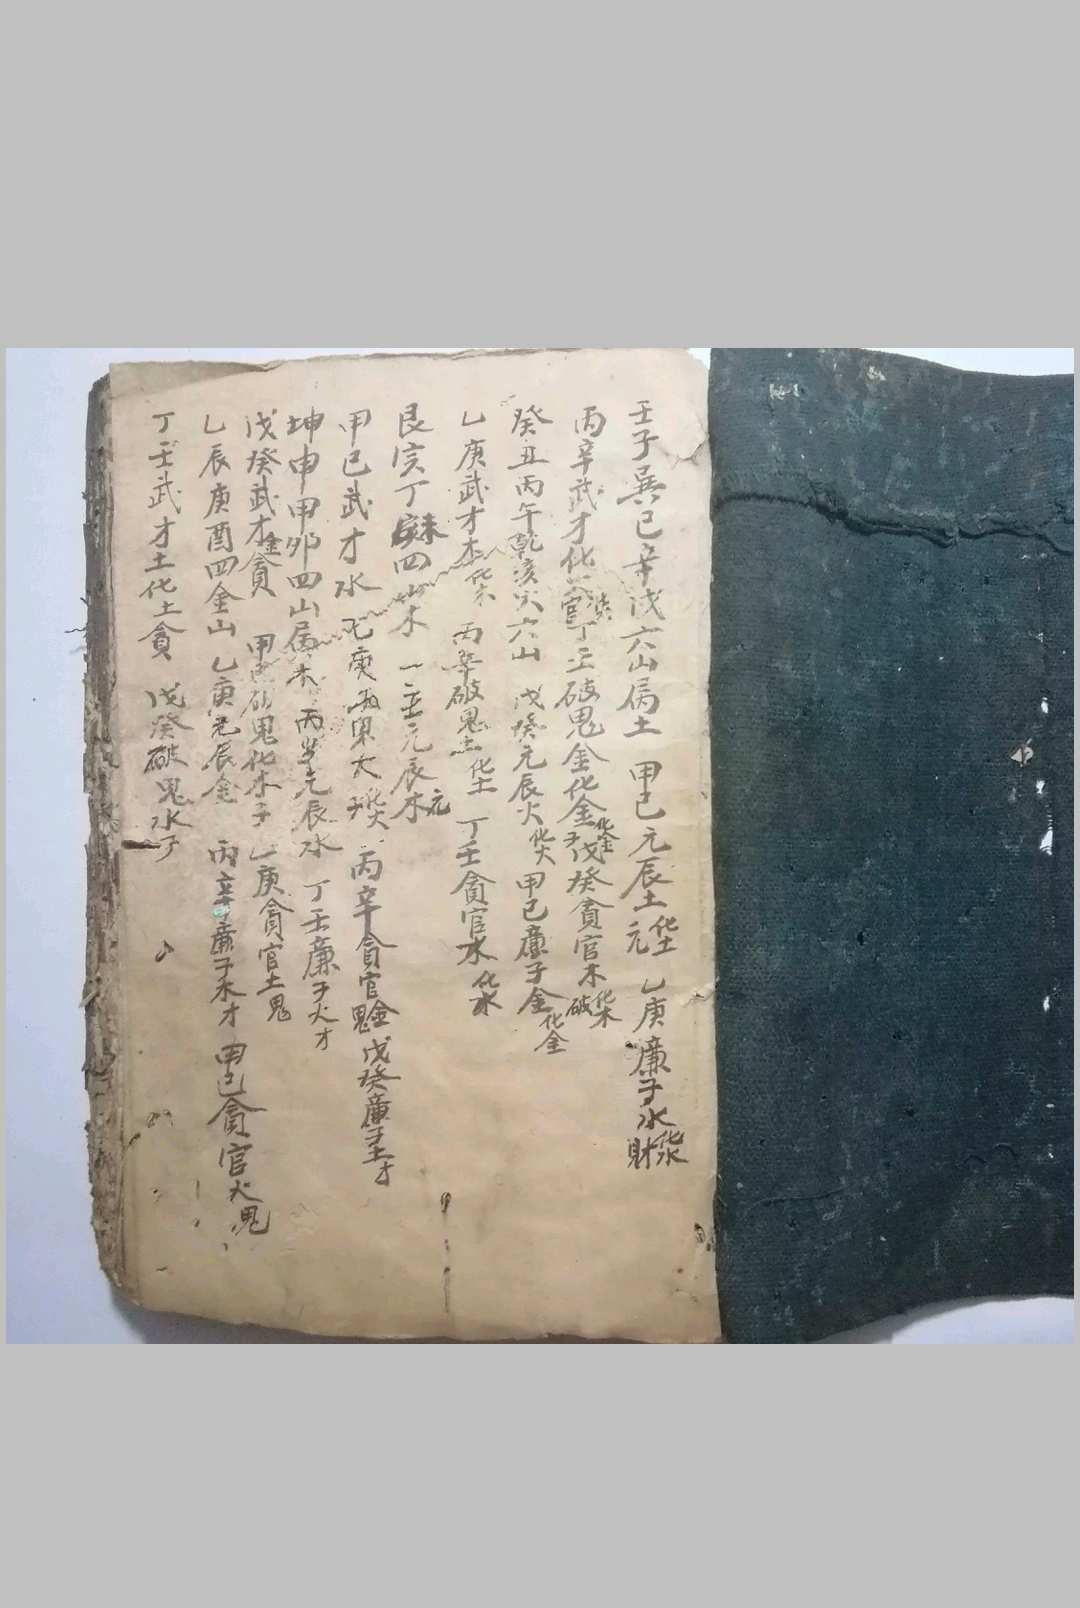 壬子巽巳辛戌六山属土 甲己元辰土化土元 乙庚廉子水化水財
丙辛武才化 官 丁壬破鬼金化金子化金 戊癸貪官木化木破
癸丑丙午乾亥火六山 戊癸元辰火化火 甲己廉子金化金
乙庚武才木化木 丙辛破鬼土化土 丁壬貪官水化水
艮寅丁未四山木 丁壬元辰木元
甲己武才水 乙庚 鬼火化火子 丙辛貪官金鬼 戊癸廉子土才
坤申甲卯四山属水 丙辛元辰水 丁壬廉子火才
戊癸武才金貪 甲己破鬼化木子 乙庚貪官土鬼
乙辰庚酉四金山 乙庚元辰金 丙辛廉子木才 甲己貪官火鬼
丁壬武才土化土貪 戊癸破鬼水子